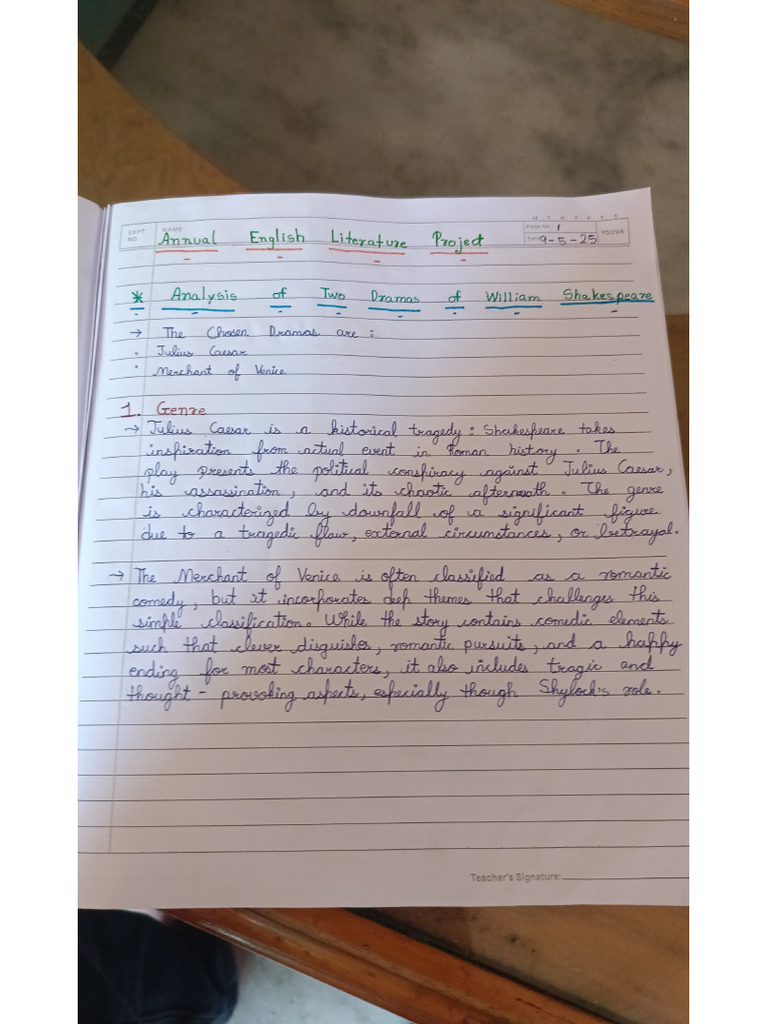 M T W T F S S
EXPT. NO.
NAME
Page No. 1
YOUVA
Date 9-5-25
Annual English Literature Project
* Analysis of Two Dramas of William Shakespeare
→ The Chosen Dramas are :
• Julius Caesar
• Merchant of Venice
1. Genre
→ Julius Caesar is a historical tragedy : Shakespeare takes
inspiration from actual event in Roman history . The
play presents the political conspiracy against Julius Caesar,
his assassination, and its chaotic aftermath . The genre
is characterized by downfall of a significant figure
due to a tragedic flaw, external circumstances, or betrayal.
→ The Merchant of Venice is often classified as a romantic
comedy, but it incorporates deep themes that challenges this
simple classification. While the story contains comedic elements
such that clever disguishes, romantic pursuits, and a happy
ending for most characters, it also includes tragic and
thought - provoking aspects, especially though Shylock's role.
Teacher's Signature: